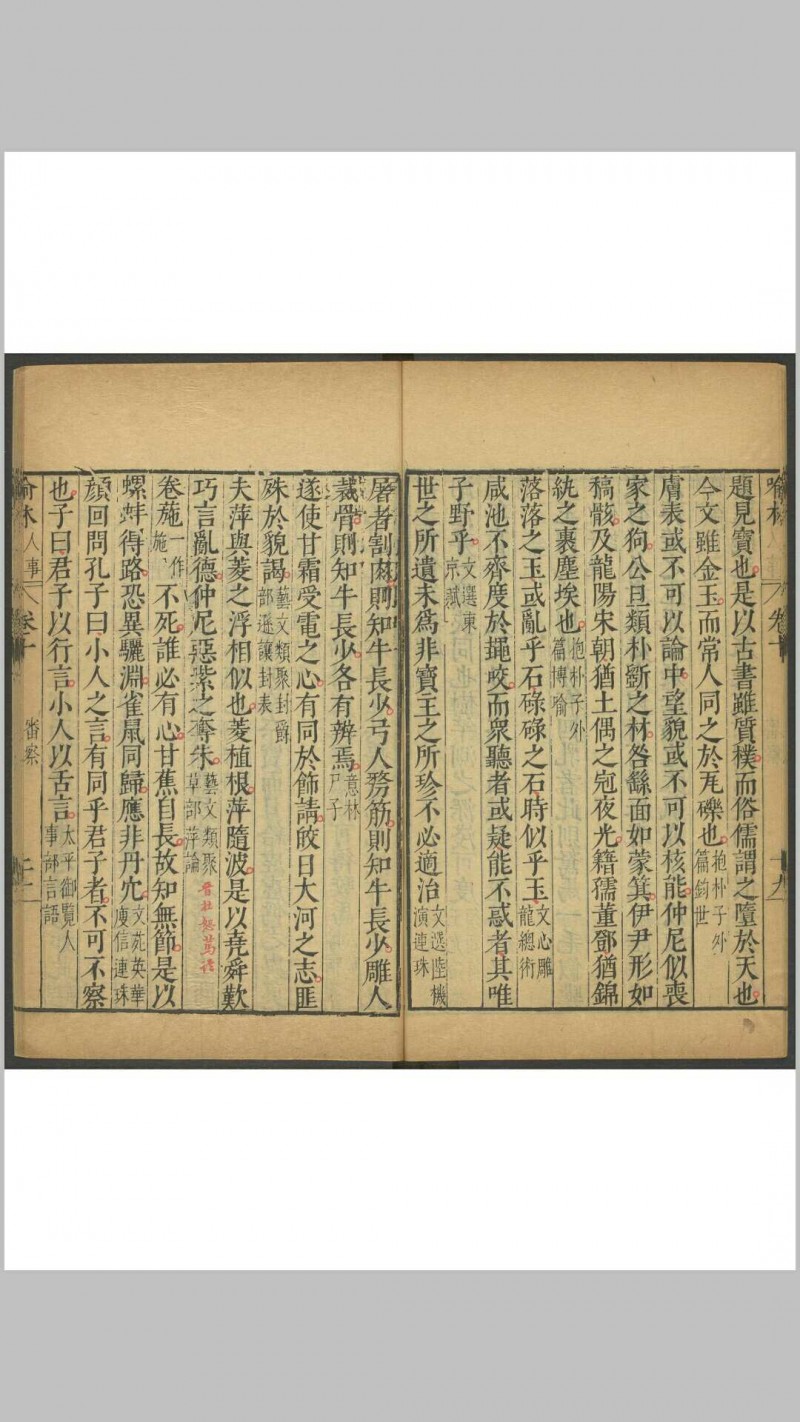 喻林
卷十
十九
題見寶也是以古書雖質樸而俗儒謂之墮於天也
今文雖金玉而常人同之於瓦礫也抱朴子外篇鈞世
膚表或不可以論中望貌或不可以核能仲尼似喪
家之狗公旦類朴斵之材咎繇面如蒙箕伊尹形如
槁骸及龍陽宋朝猶土偶之冠夜光籍孺董鄧猶錦
紈之裹塵埃也抱朴子外篇博喻
落落之玉或亂乎石碌碌之石時似乎玉文心雕龍總術
咸池不齊度於䵷咬而衆聽者或疑能不惑者其唯
子野乎文選東京賦
世之所遺未爲非寶主之所珍不必適治文選陸機演連珠
屠者割肉則知牛長少弓人剺筋則知牛長少雕人
裁骨則知牛長少各有辨焉意林尸子
遂使甘霜受電之心有同於飾請皎日大河之志匪
殊於貌謁藝文類聚封爵部遜讓封表
夫萍與菱之浮相似也菱植根萍隨波是以堯舜歎
巧言亂德仲尼惡紫之奪朱藝文類聚草部萍論
卷施一作施不死誰必有心甘蕉自長故知無節是以
螺蚌得路恐異驪淵雀鼠同歸應非丹穴文苑英華庾信連珠
顏回問孔子曰小人之言有同乎君子者不可不察
也子曰君子以行言小人以舌言太平御覽人事部言語
喻林
人事
卷十
審察